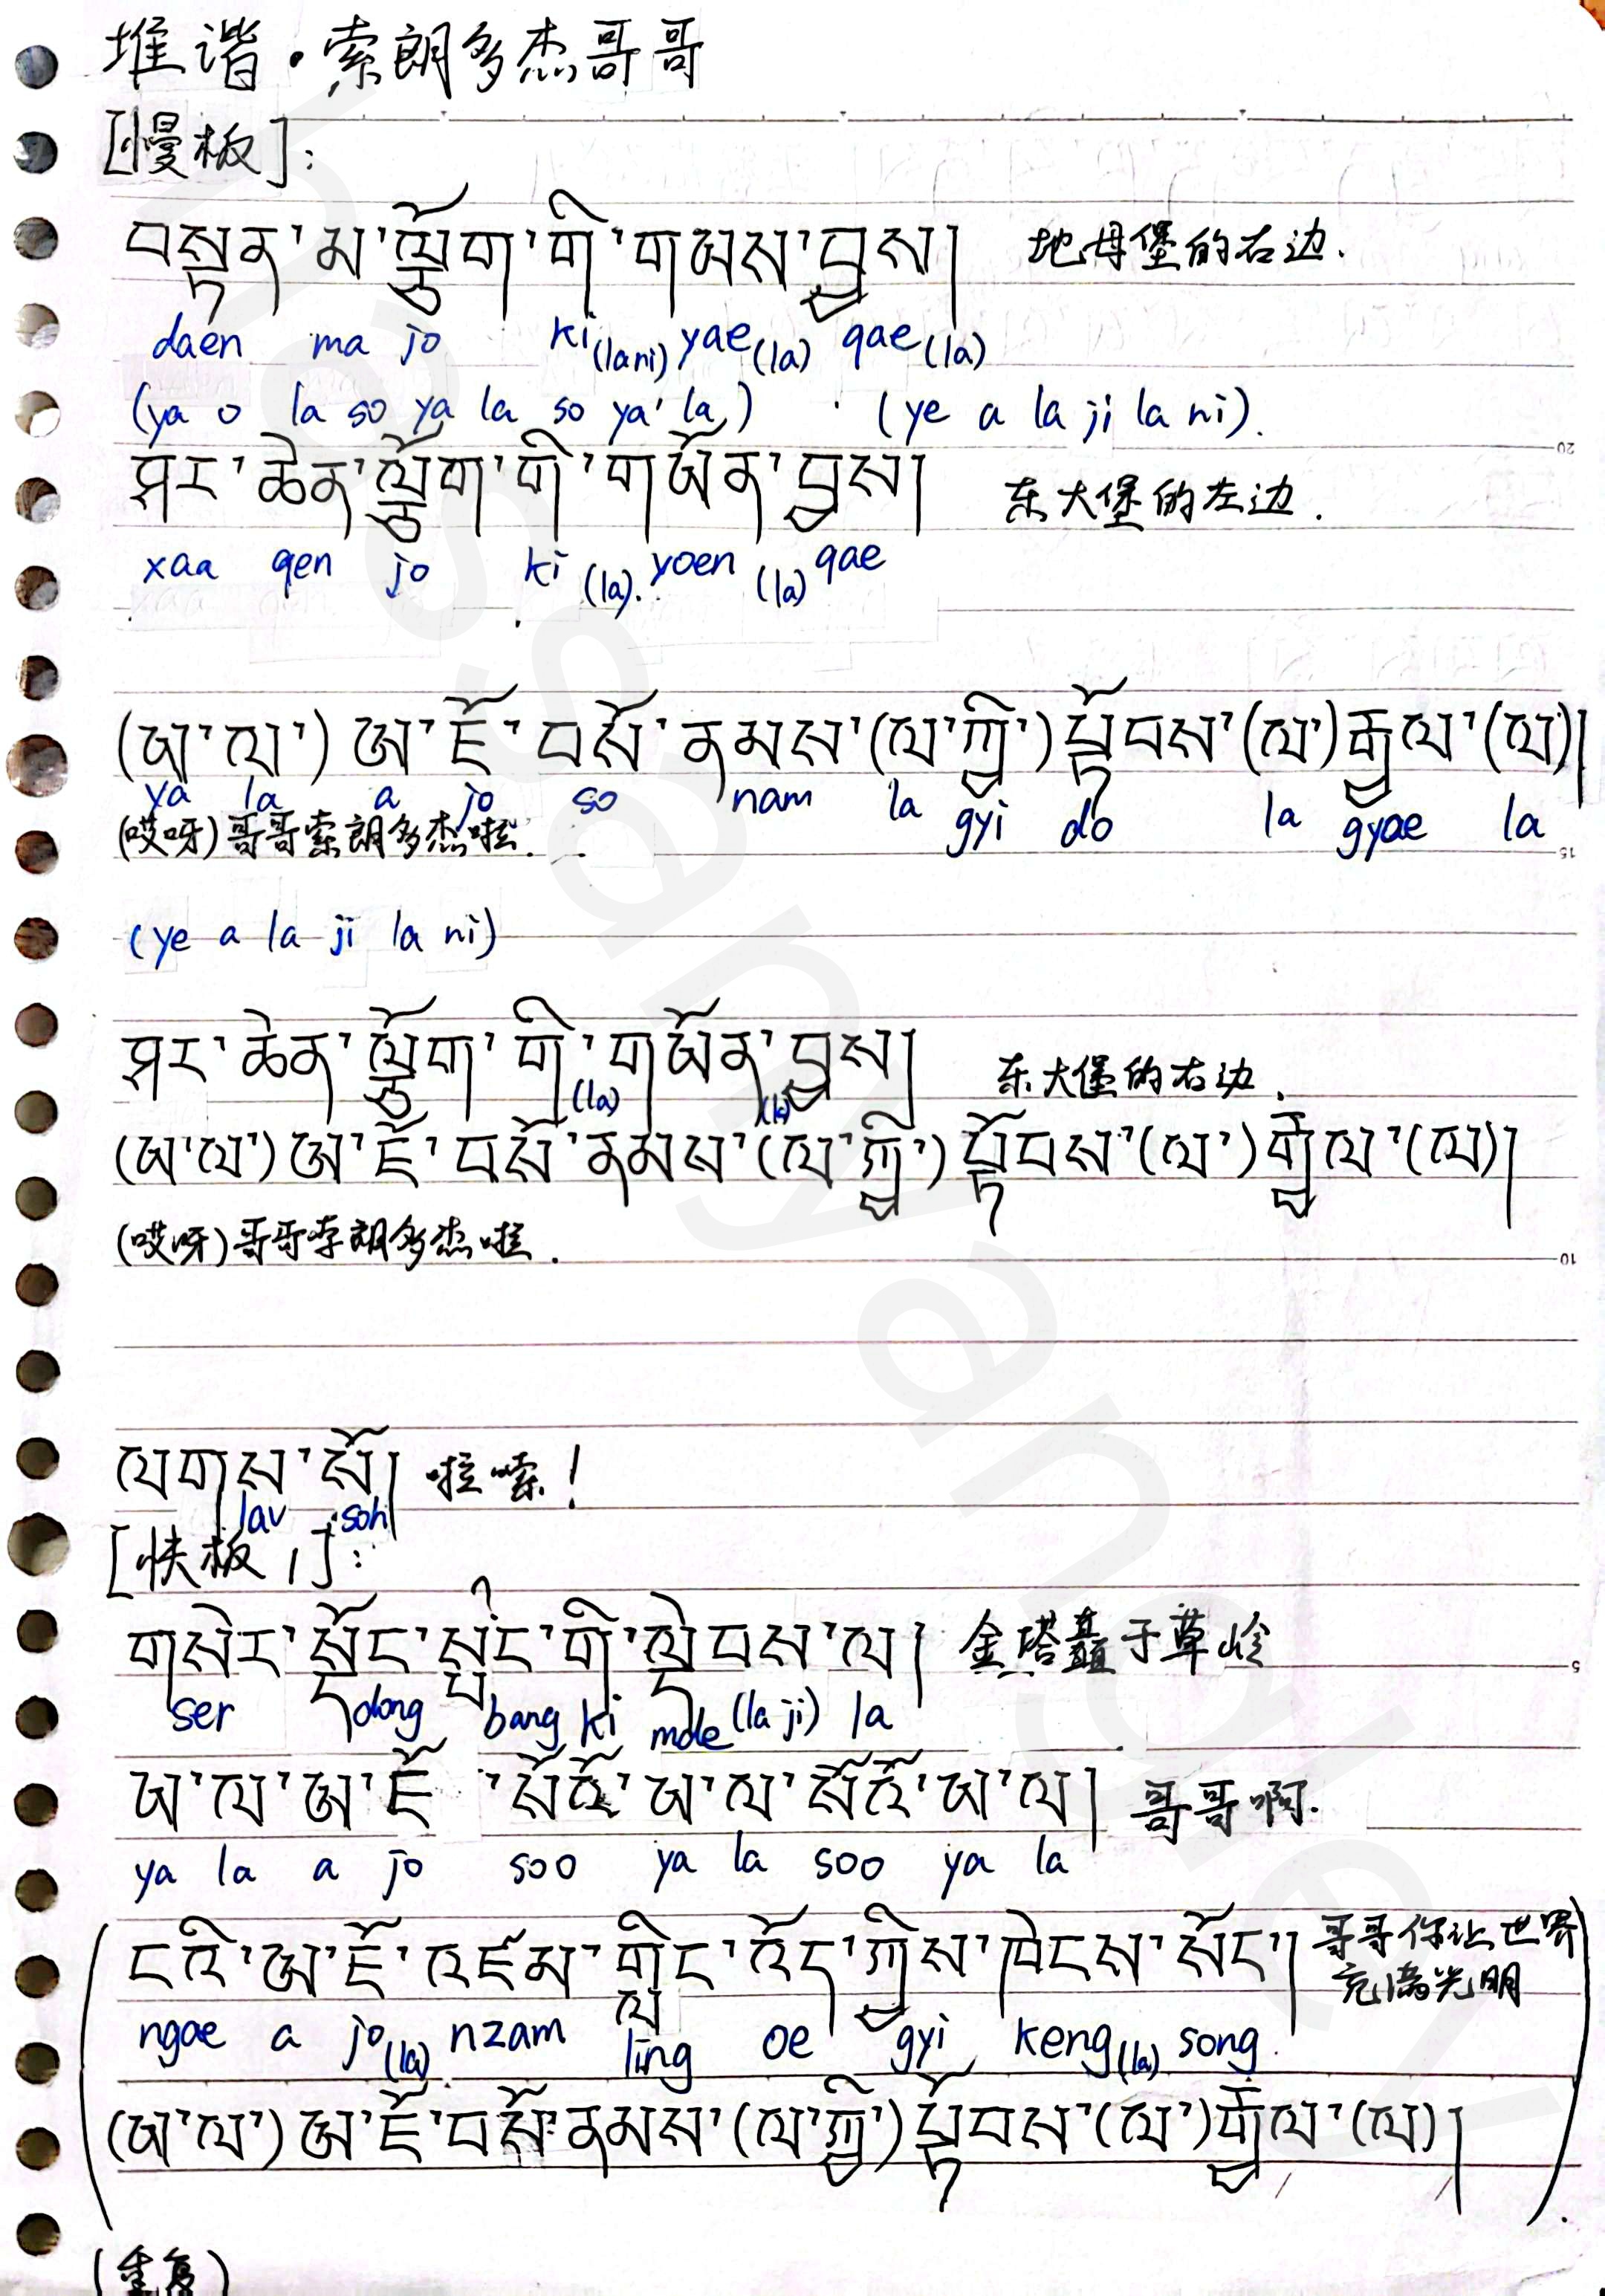 堆谐·索朗多杰哥哥
[慢板]:
བསྟན་མ་ལྕོག་གི་གཡས་བྱས། 地母堡的右边.
daen ma jo ki (lani) yae (la) qae (la)
(ya o la so ya la so ya' la) (ye a la ji la ni).
ཤར་ཆེན་ལྕོག་གི་གཡོན་བྱས། 东大堡的左边.
xaa qen jo ki (la). yoen (la) qae
(ཡ་ལ་) ཨ་ཇོ་བསོ་ནམས་(ལ་ཀྱི་) སྟོབས་(ལ་) རྒྱལ་(ལ)།
ya la a jo so nam la gyi do la gyae la
(哎呀) 哥哥索朗多杰啦.
(ye a la ji la ni)
ཤར་ཆེན་ལྕོག་གི་གཡོན་བྱས། 东大堡的右边.
(la) (la)
(ཡ་ལ་) ཨ་ཇོ་བསོ་ནམས་(ལ་ཀྱི་) སྟོབས་(ལ་) རྒྱལ་(ལ)།
(哎呀) 哥哥索朗多杰啦.
ལགས་སོ། 啦嗦!
lav soh
[快板1]:
གསེར་སྡོང་སྤང་གི་ལྡེབས་ལ། 金塔矗于草岭
ser dong bang ki mde (la ji) la
ཡ་ལ་ཨ་ཇོ་སོའོ་ཡ་ལ་སོའོ་ཡ་ལ། 哥哥啊.
ya la a jo soo ya la soo ya la
(ངའི་ཨ་ཇོ་འཛམ་གླིང་འོད་ཀྱིས་ཁེངས་སོང་། 哥哥你让世界
充满光明
ngae a jo (la) nzam ling oe gyi keng (la) song.
(ཡ་ལ་) ཨ་ཇོ་བསོ་ནམས་(ལ་ཀྱི་) སྟོབས་(ལ་) རྒྱལ་(ལ)། ).
(重复)
20
15
10
5